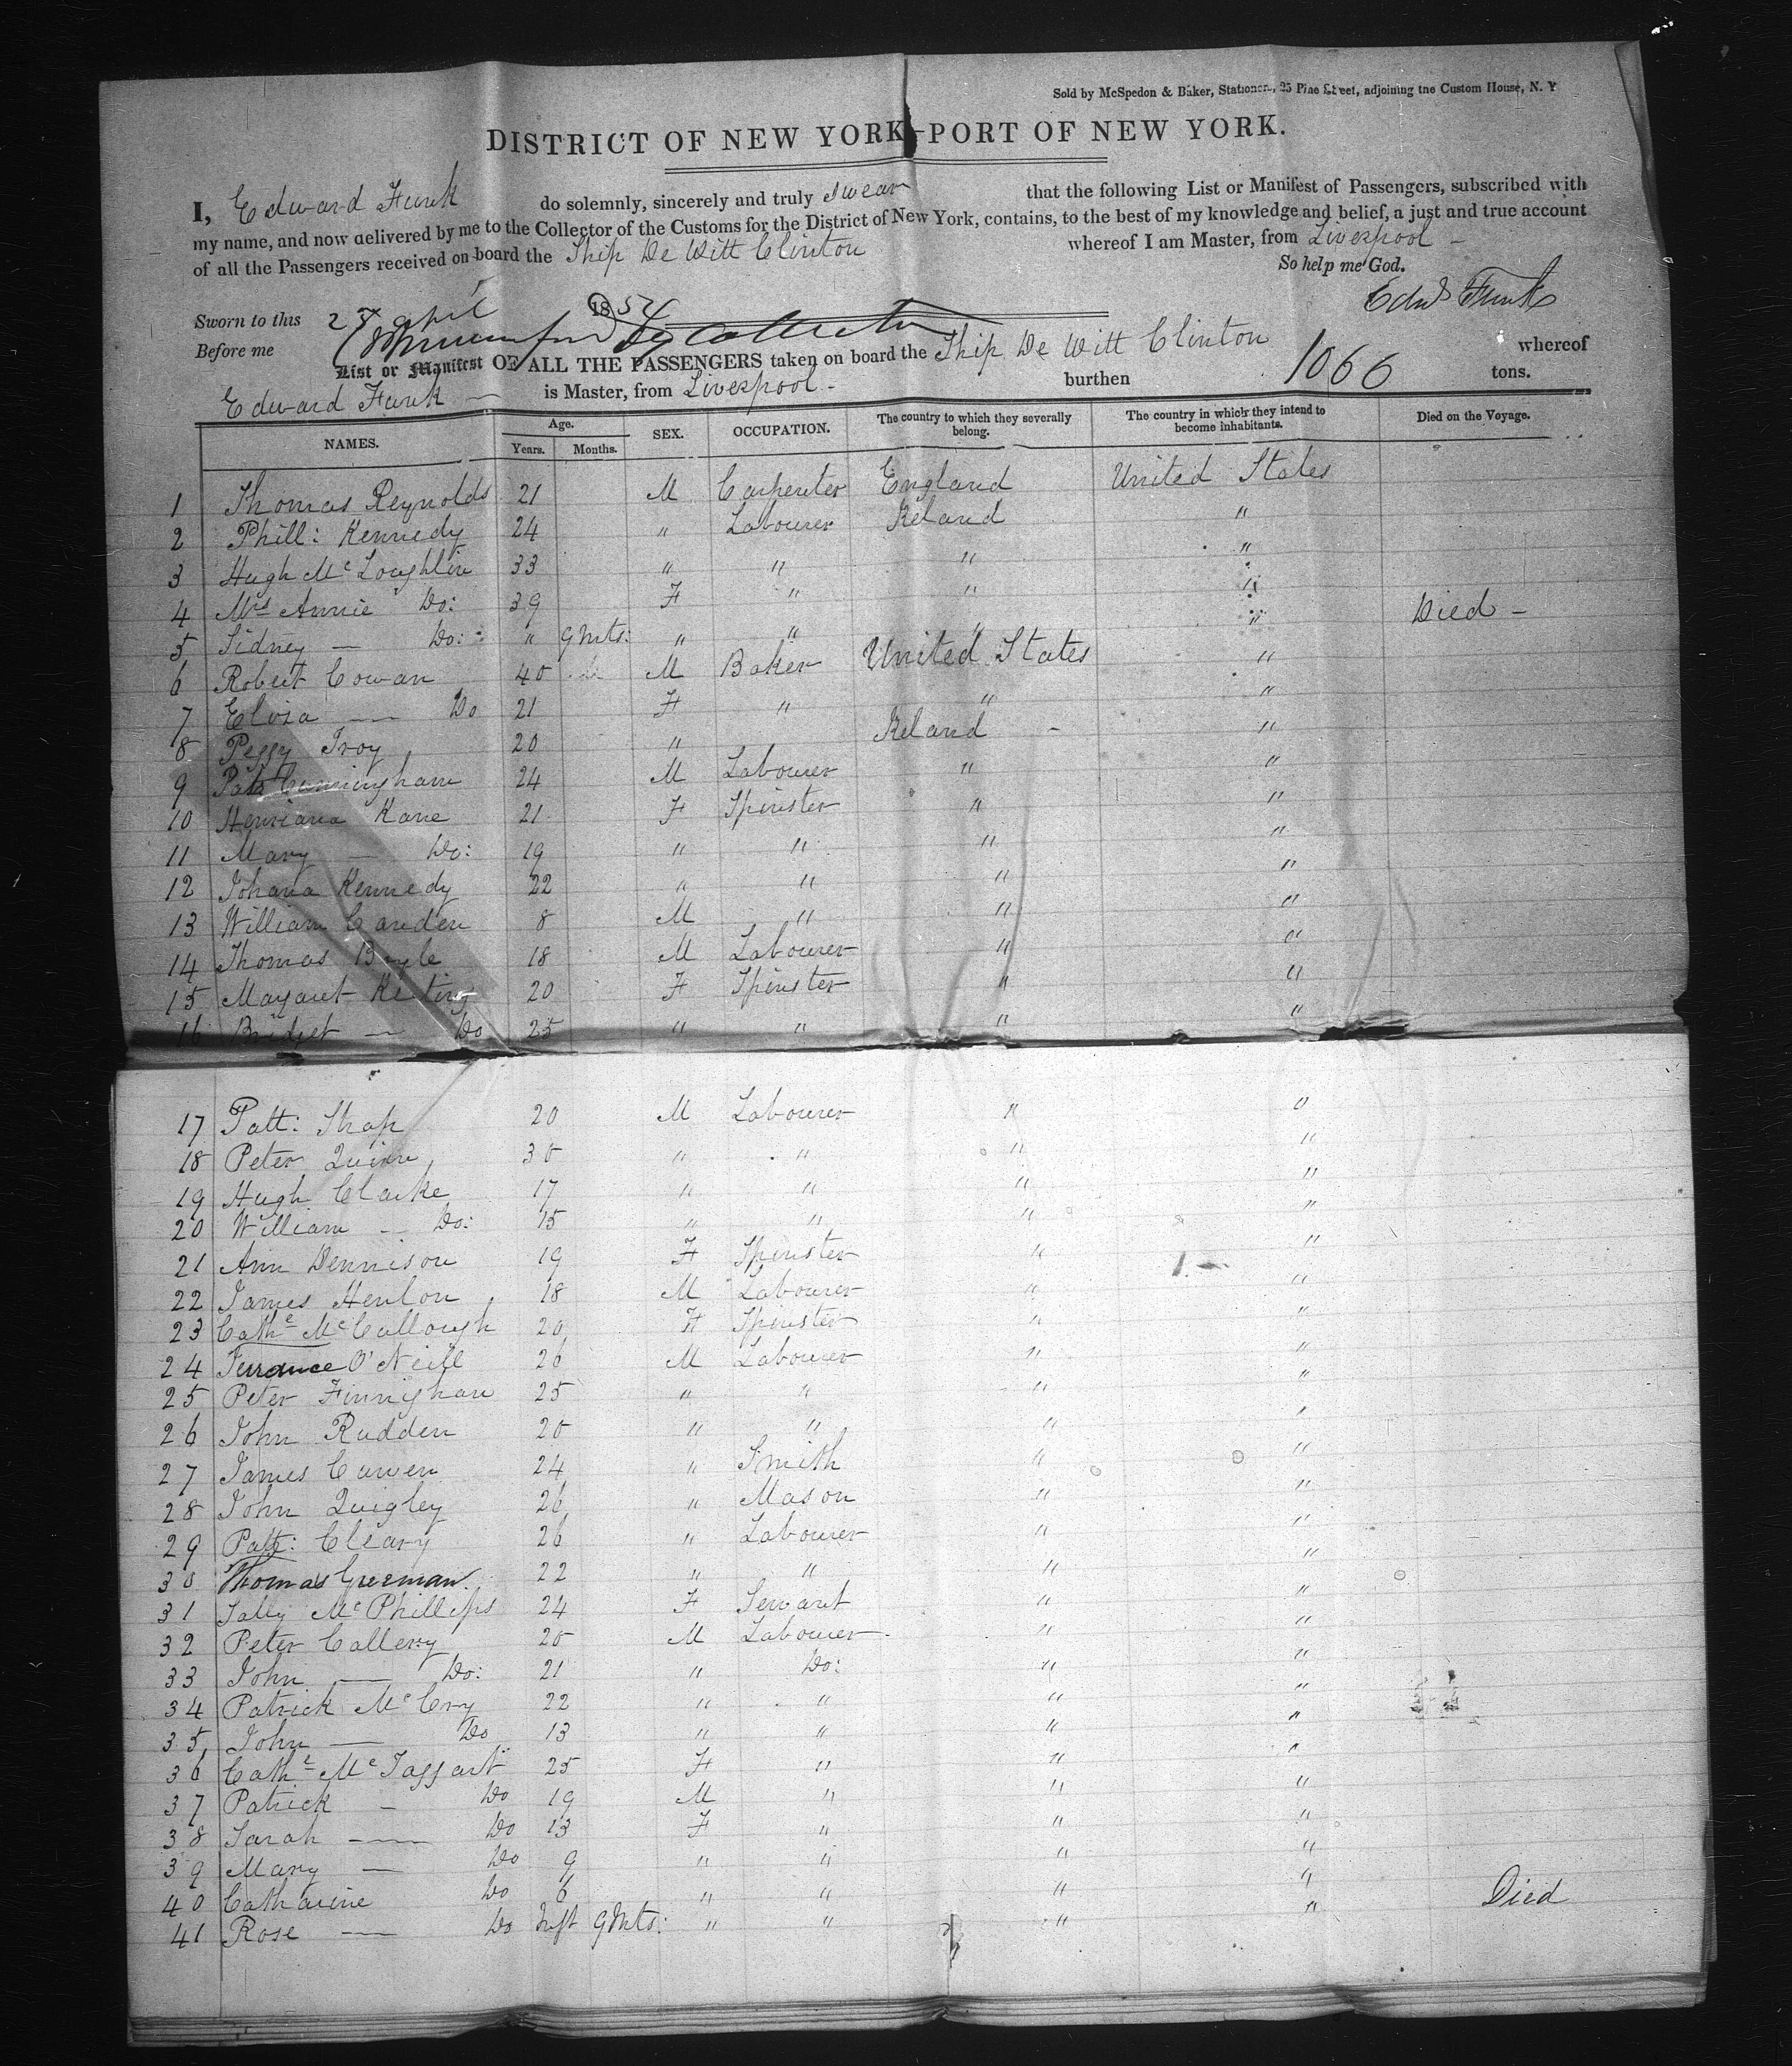 Sold by McSpedon & Baker, Stationers, 25 Pine Street, adjoining the Custom House, N. Y
DISTRICT OF NEW YORK—PORT OF NEW YORK.
I, Edward Funk do solemnly, sincerely and truly swear that the following List or Manifest of Passengers, subscribed with
my name, and now delivered by me to the Collector of the Customs for the District of New York, contains, to the best of my knowledge and belief, a just and true account
of all the Passengers received on board the Ship De Witt Clinton whereof I am Master, from Liverpool -
So help me God.
Sworn to this 25 april 1854 Edwd Funk
Before me
List or Manifest OF ALL THE PASSENGERS taken on board the Ship De Witt Clinton whereof
Edward Funk — is Master, from Liverpool - burthen 1066 tons.
NAMES. Age. Years. Months. SEX. OCCUPATION. The country to which they severally belong. The country in which they intend to become inhabitants. Died on the Voyage.
1 Thomas Reynolds 21 M Carpenter England United States
2 Phill: Kennedy 24 " Labourer Ireland "
3 Hugh Mc Loughlin 33 " " " "
4 Mrs Annie Do: 39 F " " "
5 Sidney — Do: " 9 Mts: " " " " Died -
6 Robert Cowan 40 M Baker United States "
7 Eliza — Do 21 F " " "
8 Peggy Troy 20 " Ireland - "
9 Pat Cunningham 24 M Labourer " "
10 Henriana Kane 21 F Spinster " "
11 Mary — Do: 19 " " " "
12 Johana Kennedy 22 " " " "
13 William Carden 8 M " " "
14 Thomas Boyle 18 M Labourer " "
15 Margaret Keating 20 F Spinster " "
16 Bridget — Do 25 " " " "
17 Patt: Shap 20 M Labourer " "
18 Peter Quinn 30 " " " "
19 Hugh Clarke 17 " " " "
20 William — Do: 15 " " " "
21 Ann Dennison 19 F Spinster " "
22 James Henlon 18 M Labourer " "
23 Cathe McCullough 20 F Spinster " "
24 Terrance O'Neill 26 M Labourer " "
25 Peter Finnighan 25 " " " "
26 John Rudden 20 " " " "
27 James Curven 24 " Smith " "
28 John Quigley 26 " Mason " "
29 Patt: Cleary 26 " Labourer " "
30 Thomas Greenan 22 " " " "
31 Sally McPhillips 24 F Servant " "
32 Peter Callery 20 M Labourer " "
33 John — Do: 21 " Do: " "
34 Patrick McCry 22 " " " "
35 John — Do 13 " " " "
36 Cathe McTaggart 25 F " " "
37 Patrick - Do 19 M " " "
38 Sarah — Do 13 F " " "
39 Mary — Do 9 " " " "
40 Catharine Do 6 " " " "
41 Rose — Do Inft 9 Mts: " " " " Died